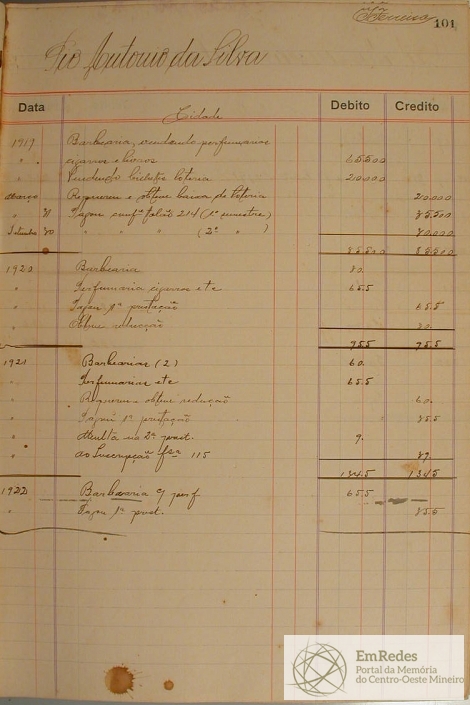 101
Pio Antonio da Silva
Data Debito Credito
Cidade
1919 Barbearia, vendendo perfumarias
" cigarros e livros 65.500
" Vendendo bilhetes loteria 20.000
Março Requereu e obteve baixa de loteria 20.000
" 31 Pagou conf.e talão 214 (1º semestre)
Setembro 30 " " " (2º " )
85.500 85.500
1920 Barbearia
" Perfumaria cigarros etc 65.5
" Pagou 1ª prestação
" Obteve reducção
95.5 95.5
1921 Barbearias (2) 60.
" Perfumarias etc 65.5
" Requereu e obteve redução 60.
" Pagou 1ª prestação
" Multa na 2ª prest. 9.
" ao Inscripção fsª 115
134.5 134.5
1922 Barbearia c/ perf 65.5
" Pagou 1ª prest.
EmRedes
Portal da Memória
do Centro-Oeste Mineiro